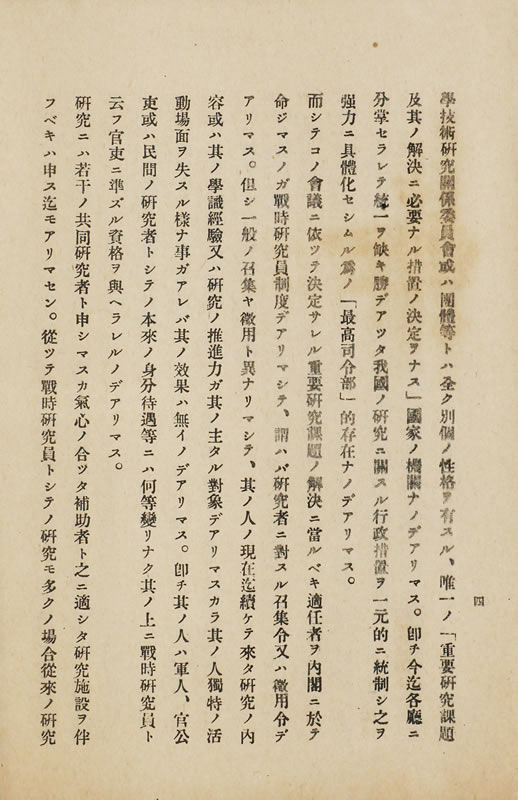 四
學技術硏究關係委員會或ハ團體等トハ全ク別個ノ性格ヲ有スル、唯一ノ「重要硏究課題
及其ノ解決ニ必要ナル措置ノ決定ヲナス」國家ノ機關ナノデアリマス。卽チ今迄各廳ニ
分掌セラレテ統一ヲ缺キ勝デアツタ我國ノ硏究ニ關スル行政措置ヲ一元的ニ統制シ之ヲ
强力ニ具體化セシムル爲ノ「最高司令部」的存在ナノデアリマス。
而シテコノ會議ニ依ツテ決定サレル重要硏究課題ノ解決ニ當ルベキ適任者ヲ內閣ニ於テ
命ジマスノガ戰時硏究員制度デアリマシテ、謂ハバ硏究者ニ對スル召集令又ハ徵用令デ
アリマス。但シ一般ノ召集ヤ徵用ト異ナリマシテ、其ノ人ノ現在迄續ケテ來タ硏究ノ內
容或ハ其ノ學識經驗又ハ硏究ノ推進力ガ其ノ主タル對象デアリマスカラ其ノ人獨特ノ活
動場面ヲ失スル樣ナ事ガアレバ其ノ效果ハ無イノデアリマス。卽チ其ノ人ハ軍人、官公
吏或ハ民間ノ硏究者トシテノ本來ノ身分待遇等ニハ何等變リナク其ノ上ニ戰時硏究員ト
云フ官吏ニ準ズル資格ヲ與ヘラレルノデアリマス。
硏究ニハ若干ノ共同硏究者ト申シマスカ氣心ノ合ツタ補助者ト之ニ適シタ硏究施設ヲ伴
フベキハ申ス迄モアリマセン。從ツテ戰時硏究員トシテノ硏究モ多クノ場合從來ノ硏究